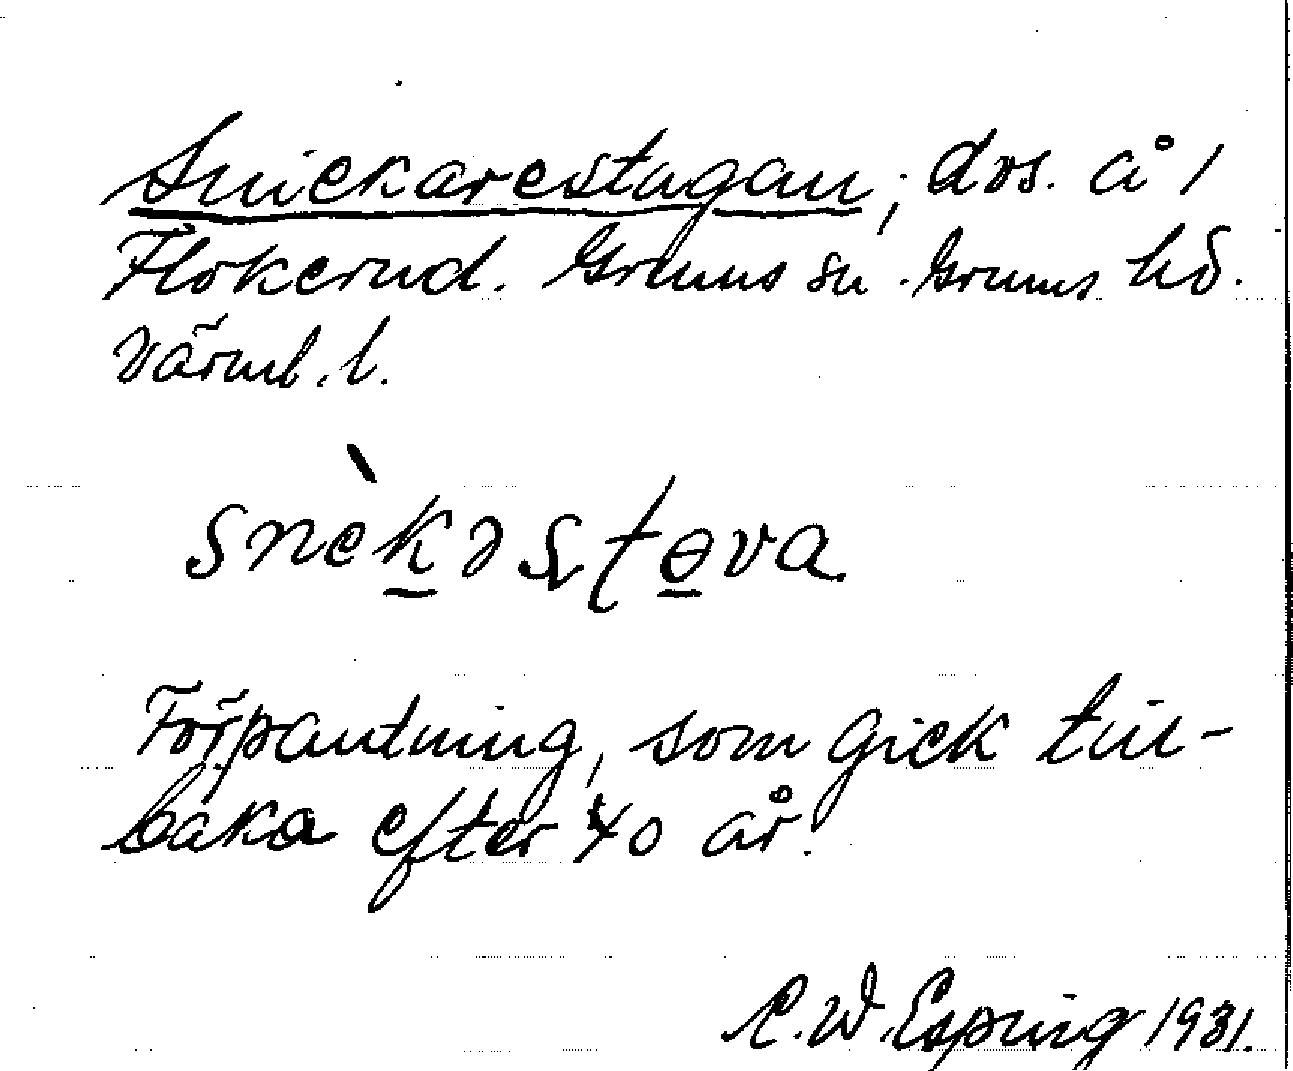 Snickarestugan; dos. å 1
Flokerud. Grums sn. Grums hd.
Värml. l.
snèkəstɵva
Förpantning, som gick till-
baka efter 40 år.
C.W. Espring 1931.